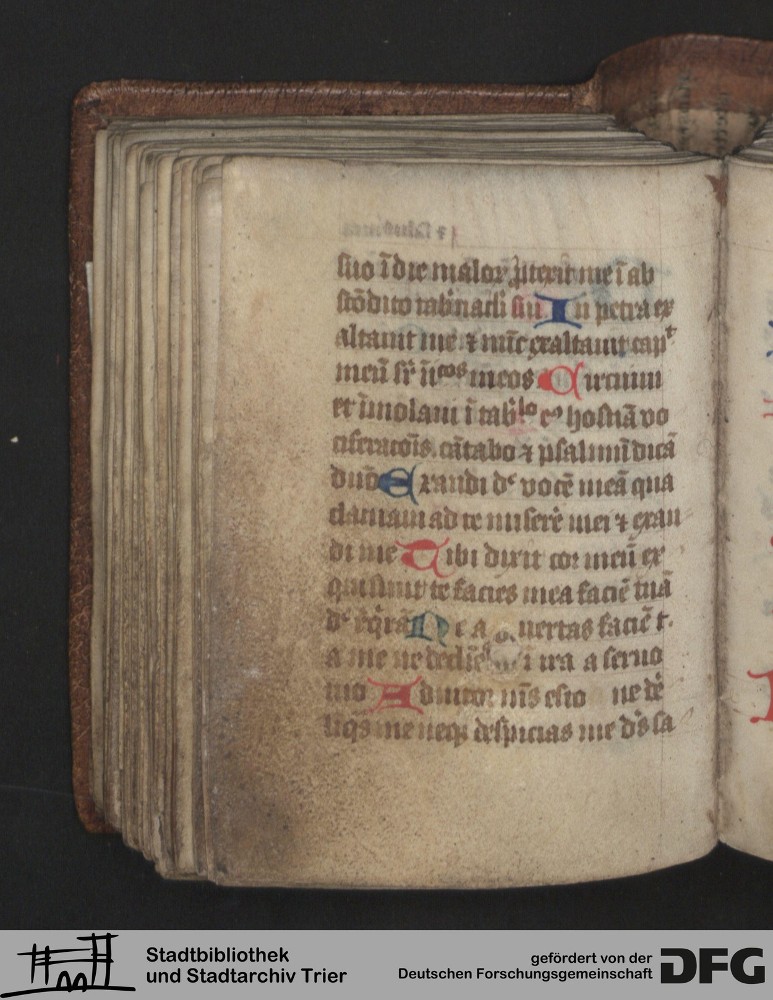 suo ī die maloꝝ ꝓtexit me ī ab
scōdito tab̄nacli sui In petra ex
altauit me ⁊ nūc exaltauit capᵗ
meū sr̄ īīcos meos Circuiui
et īmolaui ī tab̄lo eꝰ hostiā vo
ciferacōis cātabo ⁊ psalmū dicā
dn̄o Exaudi dᵉ vocē meā qua
clamaui ad te miserē mei ⁊ exau
di me Tibi dixit cor meū ex
quisiuit te facies mea faciē tuā
dᵉ reqrā Ne a uertas faciē t.
a me ne declīēs ī ira a seruo
tuo Adiutor m̄s esto ne dē
liqs me neqꝫ despicias me ds̄ sa
Stadtbibliothek
und Stadtarchiv Trier
gefördert von der
Deutschen Forschungsgemeinschaft
DFG